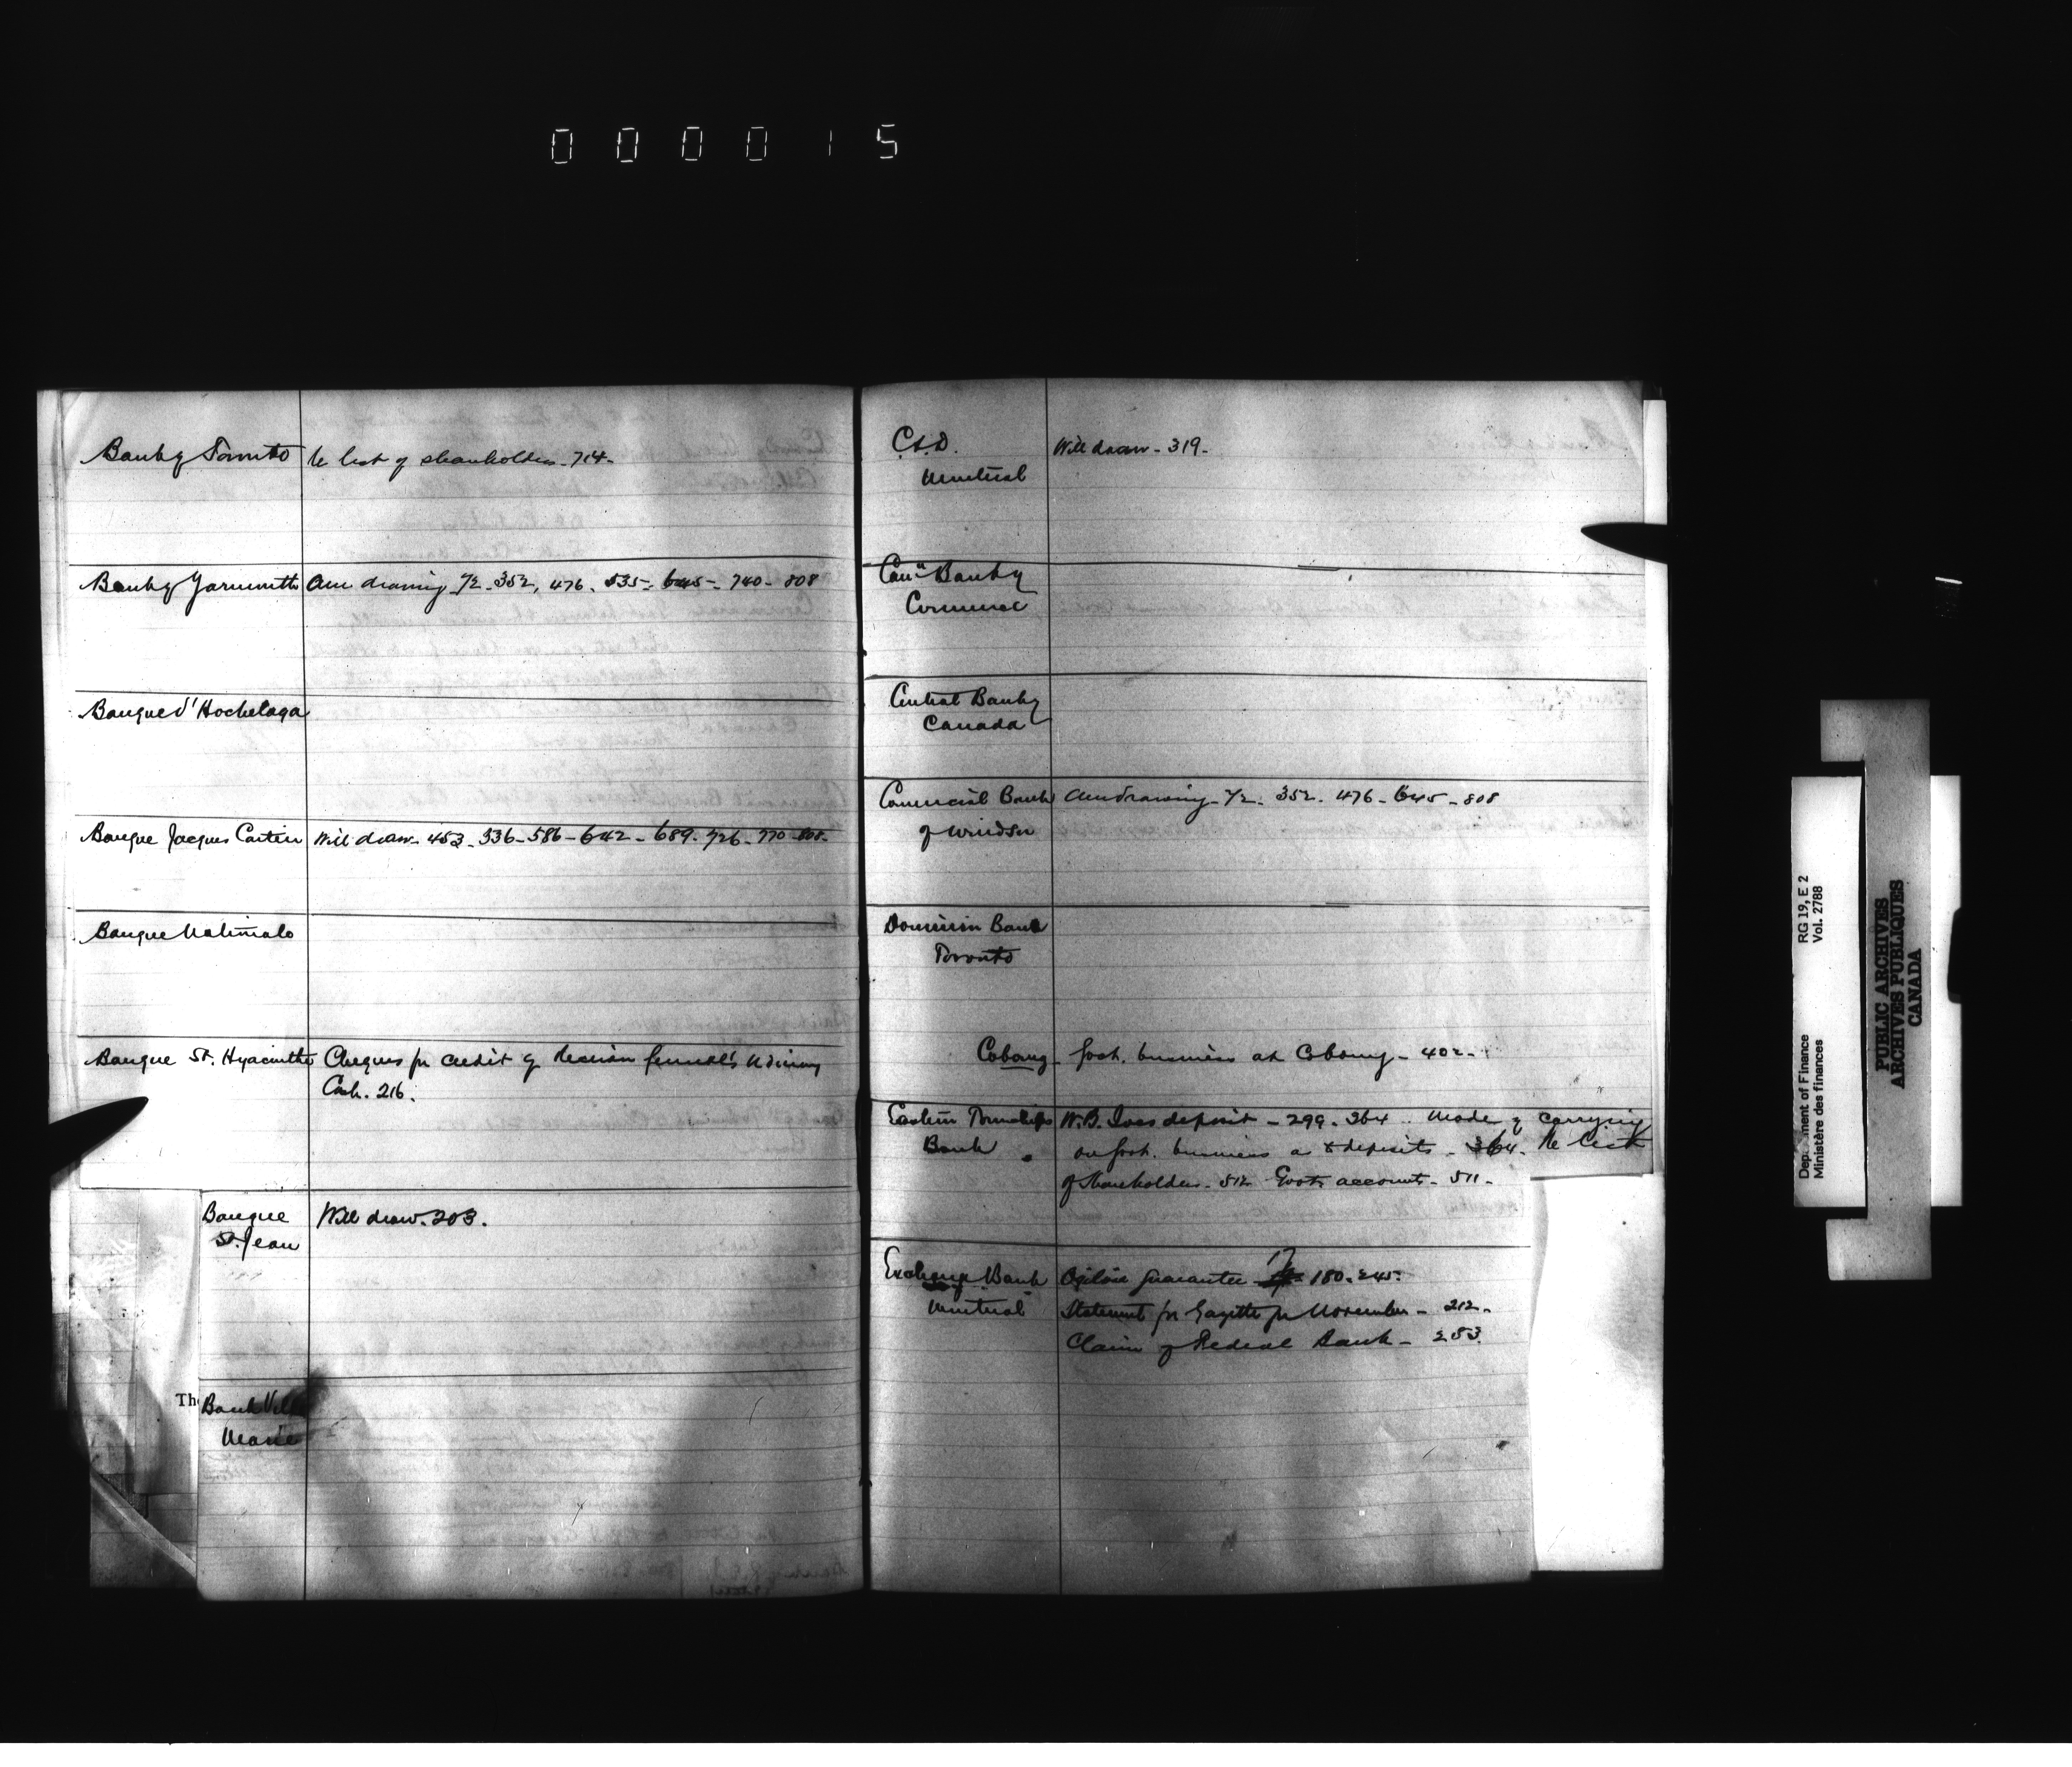 000015
Bank of Toronto re list of shareholders. 714.
Bank of Yarmouth Am drawing 72. 352, 476. 535. 645. 740. 808
Banque d'Hochelaga
Banque Jacques Cartier Will draw. 453. 336. 586. 642. 689. 726. 770 808.
Banque Nationale
Banque St. Hyacinthe Cheques for credit of
Cash. 216.
Banque Will draw. 203.
St. Jean
The
Bank Ville
Marie
Will draw. 319.
Montreal
Can'n Bank of
Commerce
Central Bank of
Canada
Commercial Bank Am drawing. 72. 352. 476. 645. 808
of Windsor
Dominion Bank
Toronto
Cobourg Govt. business at Cobourg. 402.
Eastern Townships W.B. Ives deposit. 299. 364. Mode of carrying
Bank on Govt. business a deposits. 364. Re list
of Shareholders. 512 Govt. account. 511.
Exchange Bank Ogilvie Guarantee 17 180. 245.
Montreal Statement for Gazette for November. 212.
Claim of Federal Bank. 283.
Department of Finance RG 19, E 2
Ministère des finances Vol. 2788
PUBLIC ARCHIVES
ARCHIVES PUBLIQUES
CANADA